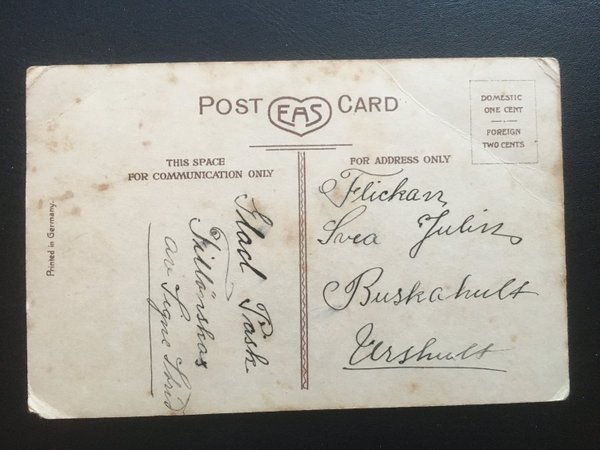 POST EAS CARD
DOMESTIC
ONE CENT
FOREIGN
TWO CENTS
THIS SPACE
FOR COMMUNICATION ONLY
FOR ADDRESS ONLY
Printed in Germany.
Glad Påsk
Tillönskas
av Signe Strid
Flickan
Svea Julin
Buskahult
Urshult